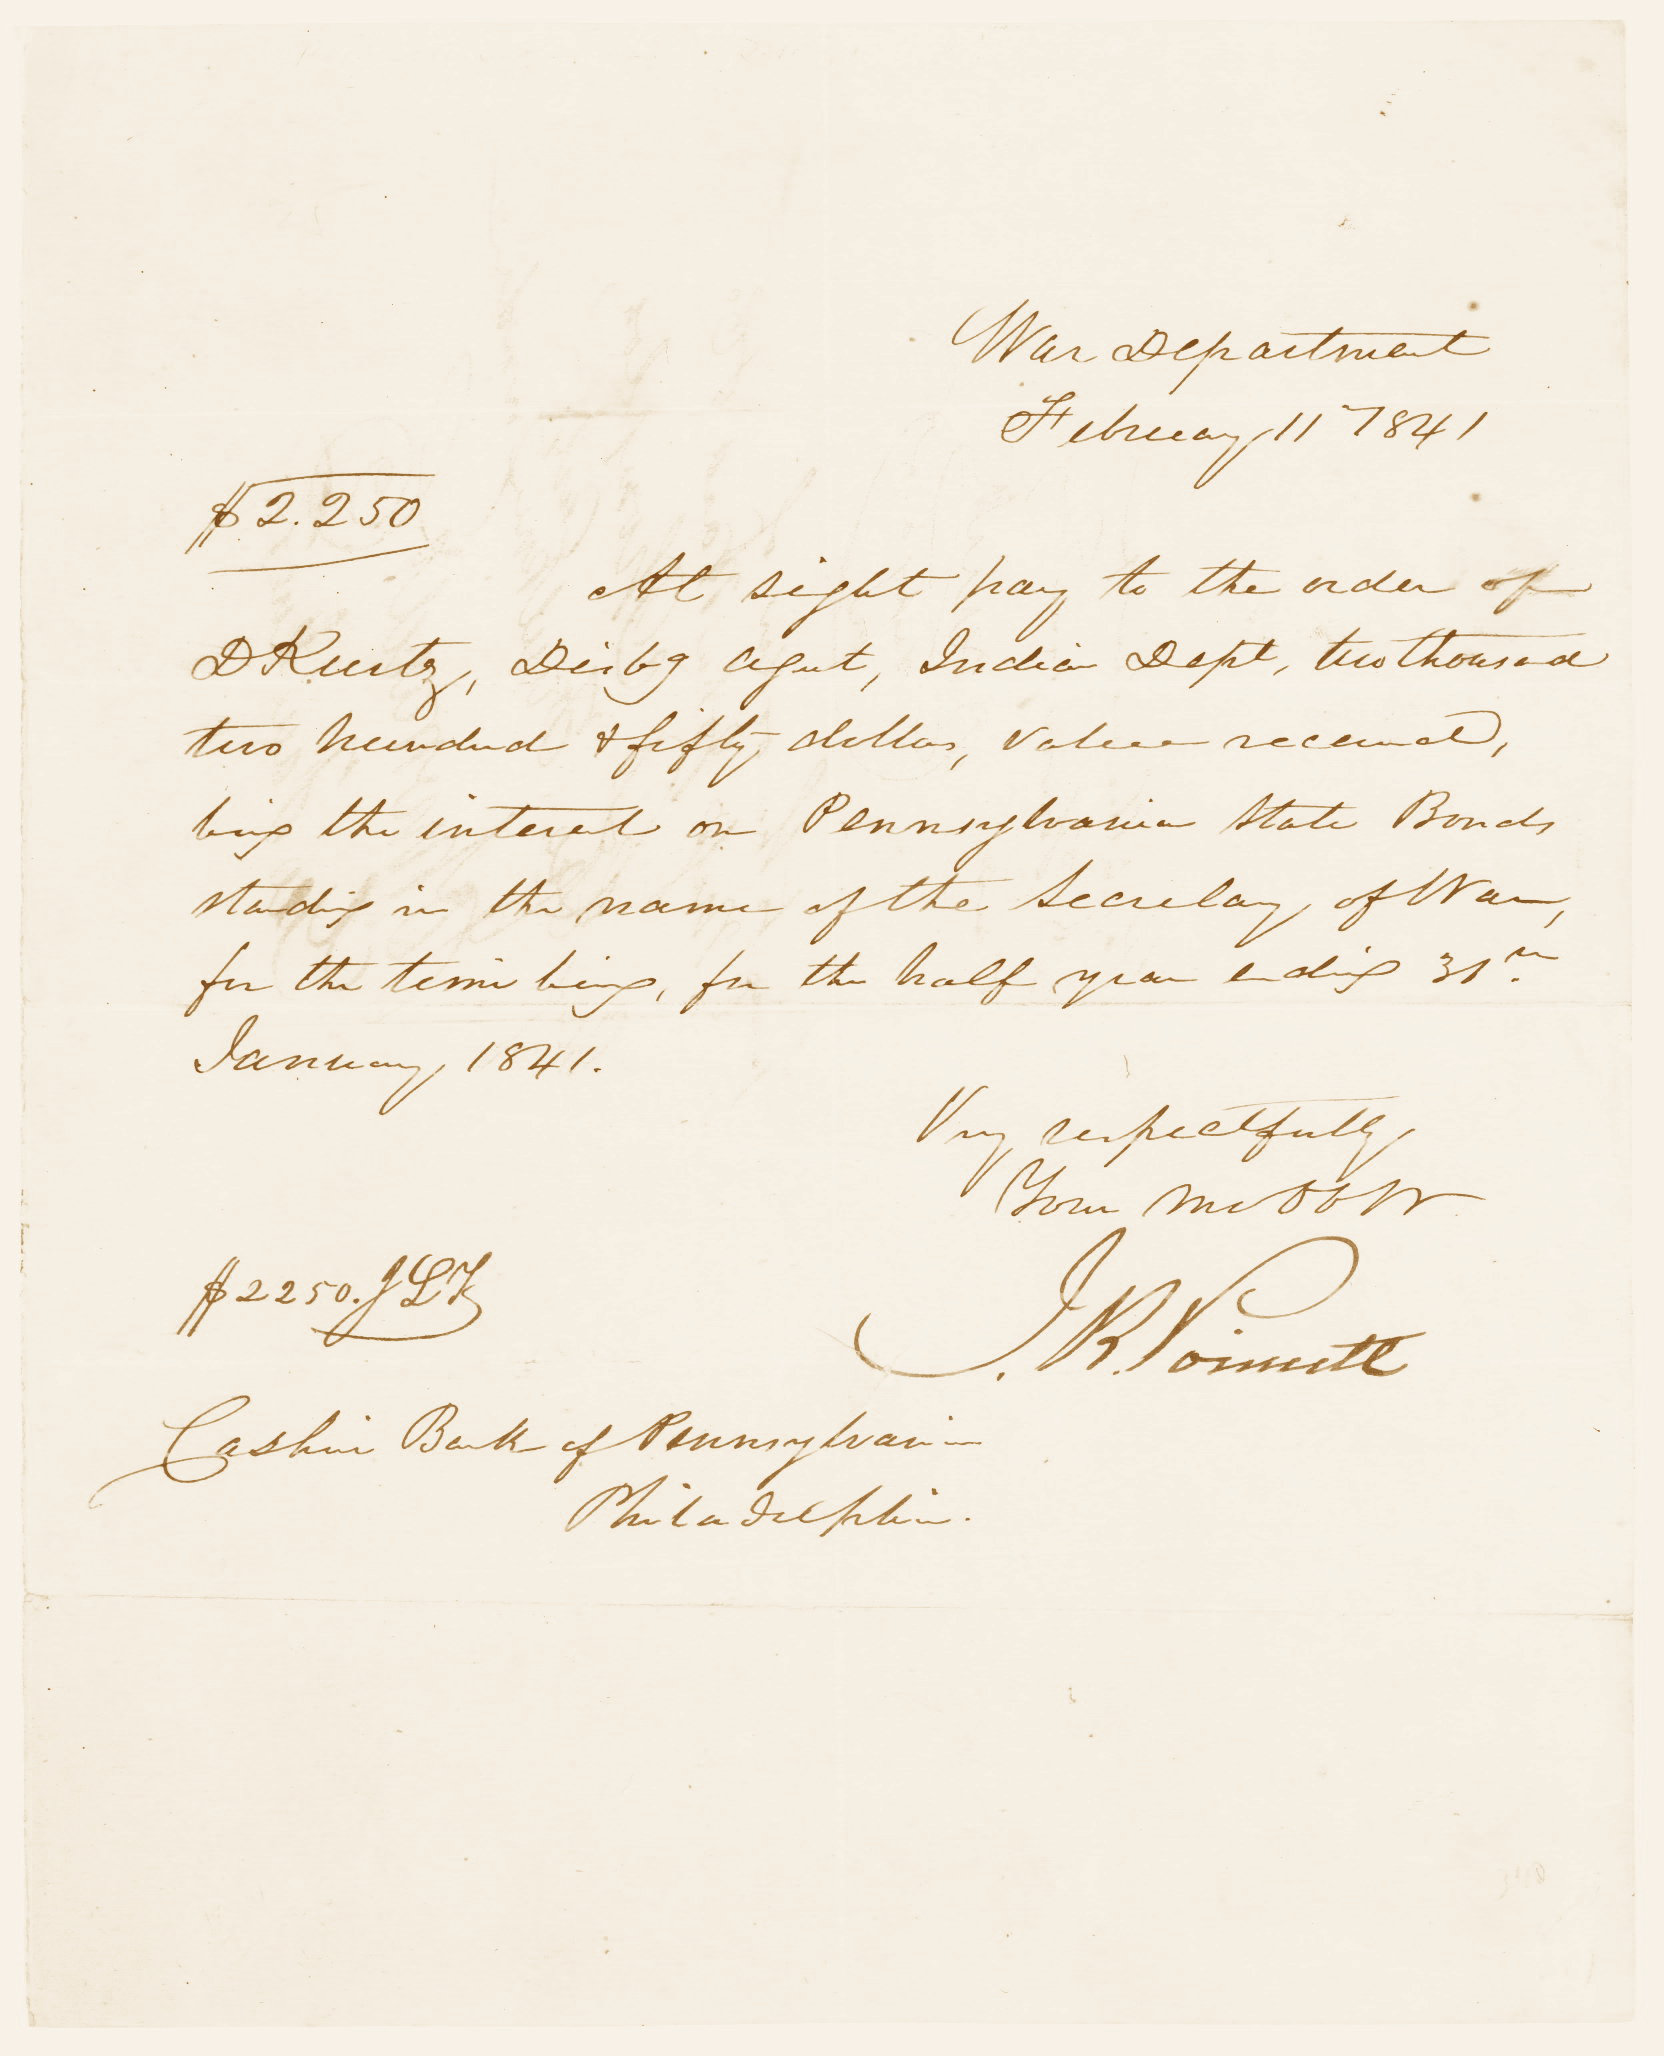 War Department
February 11 1841
$2.250
At sight pay to the order of
D Kurtz, Disbg Agent, Indian Dept, two thousand
two hundred & fifty dollars, value received,
being the interest on Pennsylvania State Bonds
standing in the name of the Secretary of War,
for the time being, for the half year ending 31
January 1841.
Very respectfully
Your Mo Ob
J. R. Poinsett
$2250.
Cashier Bank of Pennsylvania
Philadelphia.